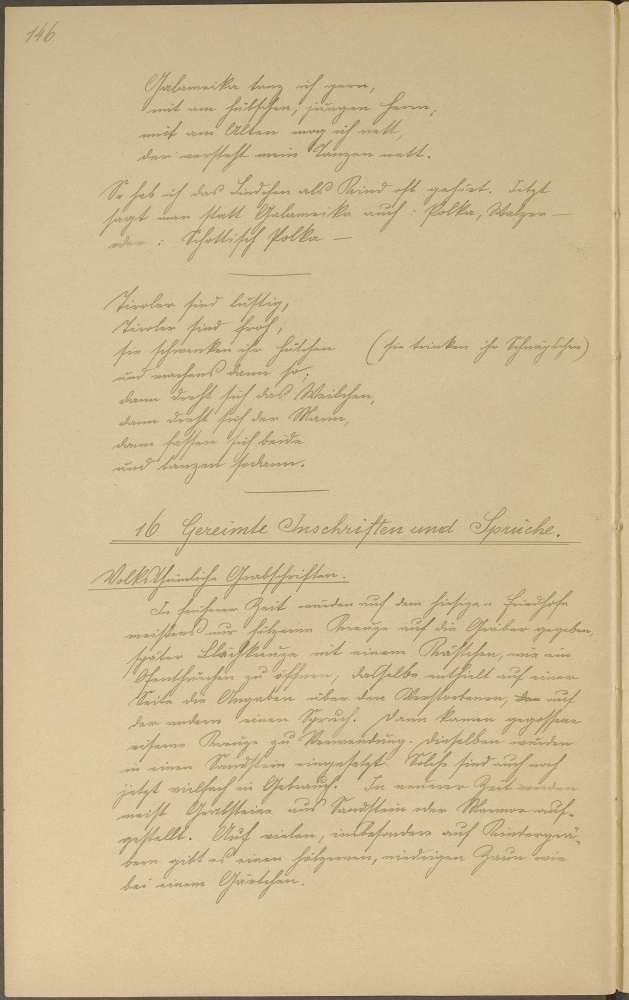 146.
Galameika tanz ich gern,
mit am hübschen, jungen Herrn,
mit am Alten mag ich nett,
der versteht mein Tanzen nett.
So hab ich das Liedchen als Kind oft gehört. Jetzt
sagt man statt Galameika auch: Polka, Walzer —
oder: Schottisch Polka —
Tiroler sind lustig,
Tiroler sind froh,
sie schwenken ihr Hütchen (sie trinken ihr Schnäpschen)
und machens dann so;
dann dreht sich das Weibchen,
dann dreht sich der Mann,
dann fassen sich beide
und tanzen sodann.
16 Gereimte Inschriften und Sprüche.
Volksthümliche Grabschriften.
In früherer Zeit wurden auf dem hiesigen Friedhofe
meistens nur hölzerne Kreuze auf die Gräber gegeben,
später Blechkreuze mit einem Kästchen, wie ein
Ofenthürchen zu öffnen, dasselbe enthielt auf einer
Seite die Angaben über den Verstorbenen, auf
der andern einen Spruch. Dann kamen gegossene
eiserne Kreuze zu Verwendung. Dieselben wurden
in einen Sandstein eingesetzt. Solche sind auch noch
jetzt vielfach in Gebrauch. In neuerer Zeit werden
meist Grabsteine aus Sandstein oder Marmor auf-
gestellt. Auf vielen, insbesondere auf Kindergrä-
bern gibt es einen hölzernen, niedrigen Zaun wie
bei einem Gärtchen.